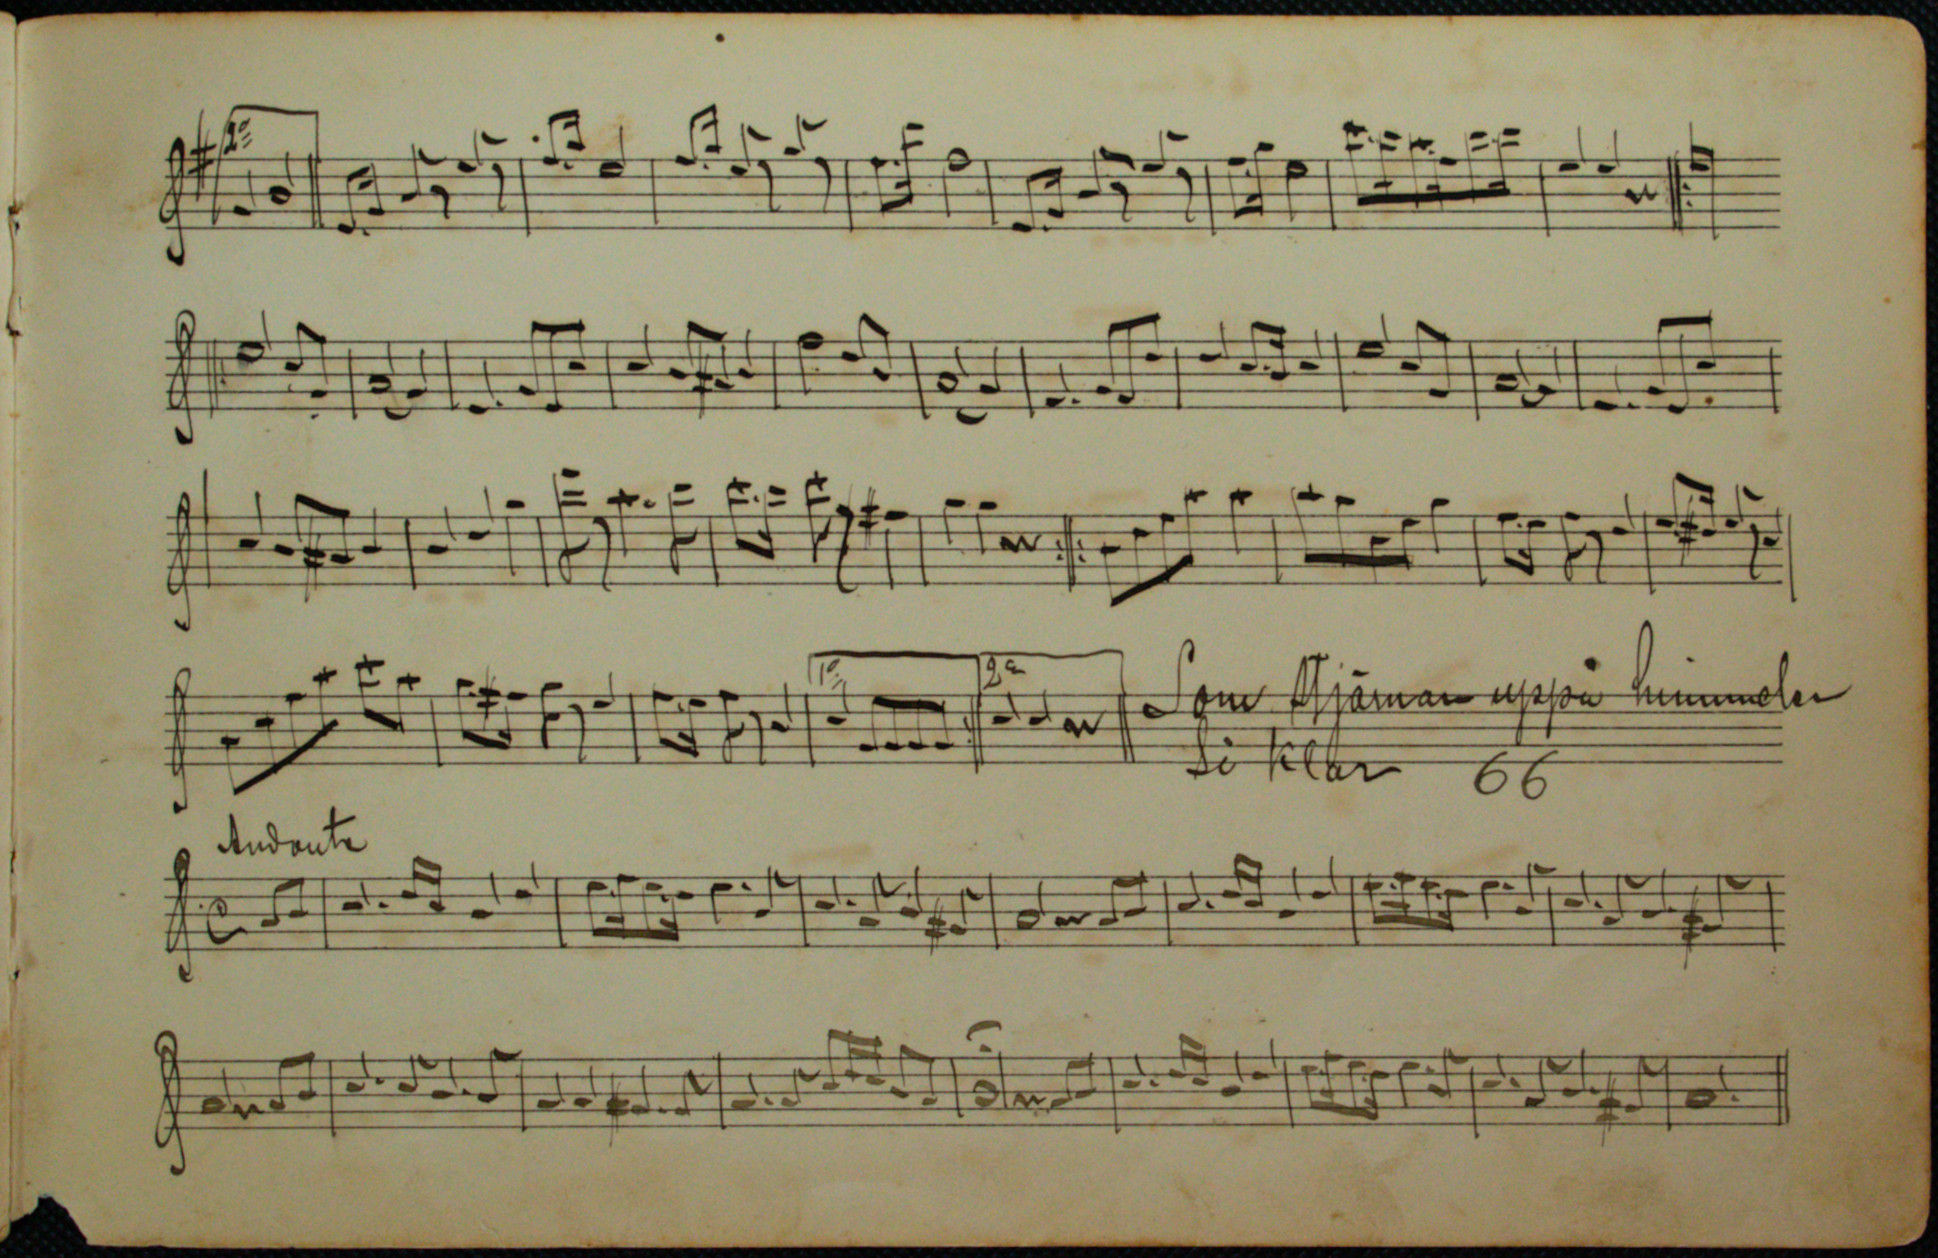 1º
1º 2ª
Som stjärnan uppå himmelen
så klar 66
Andante